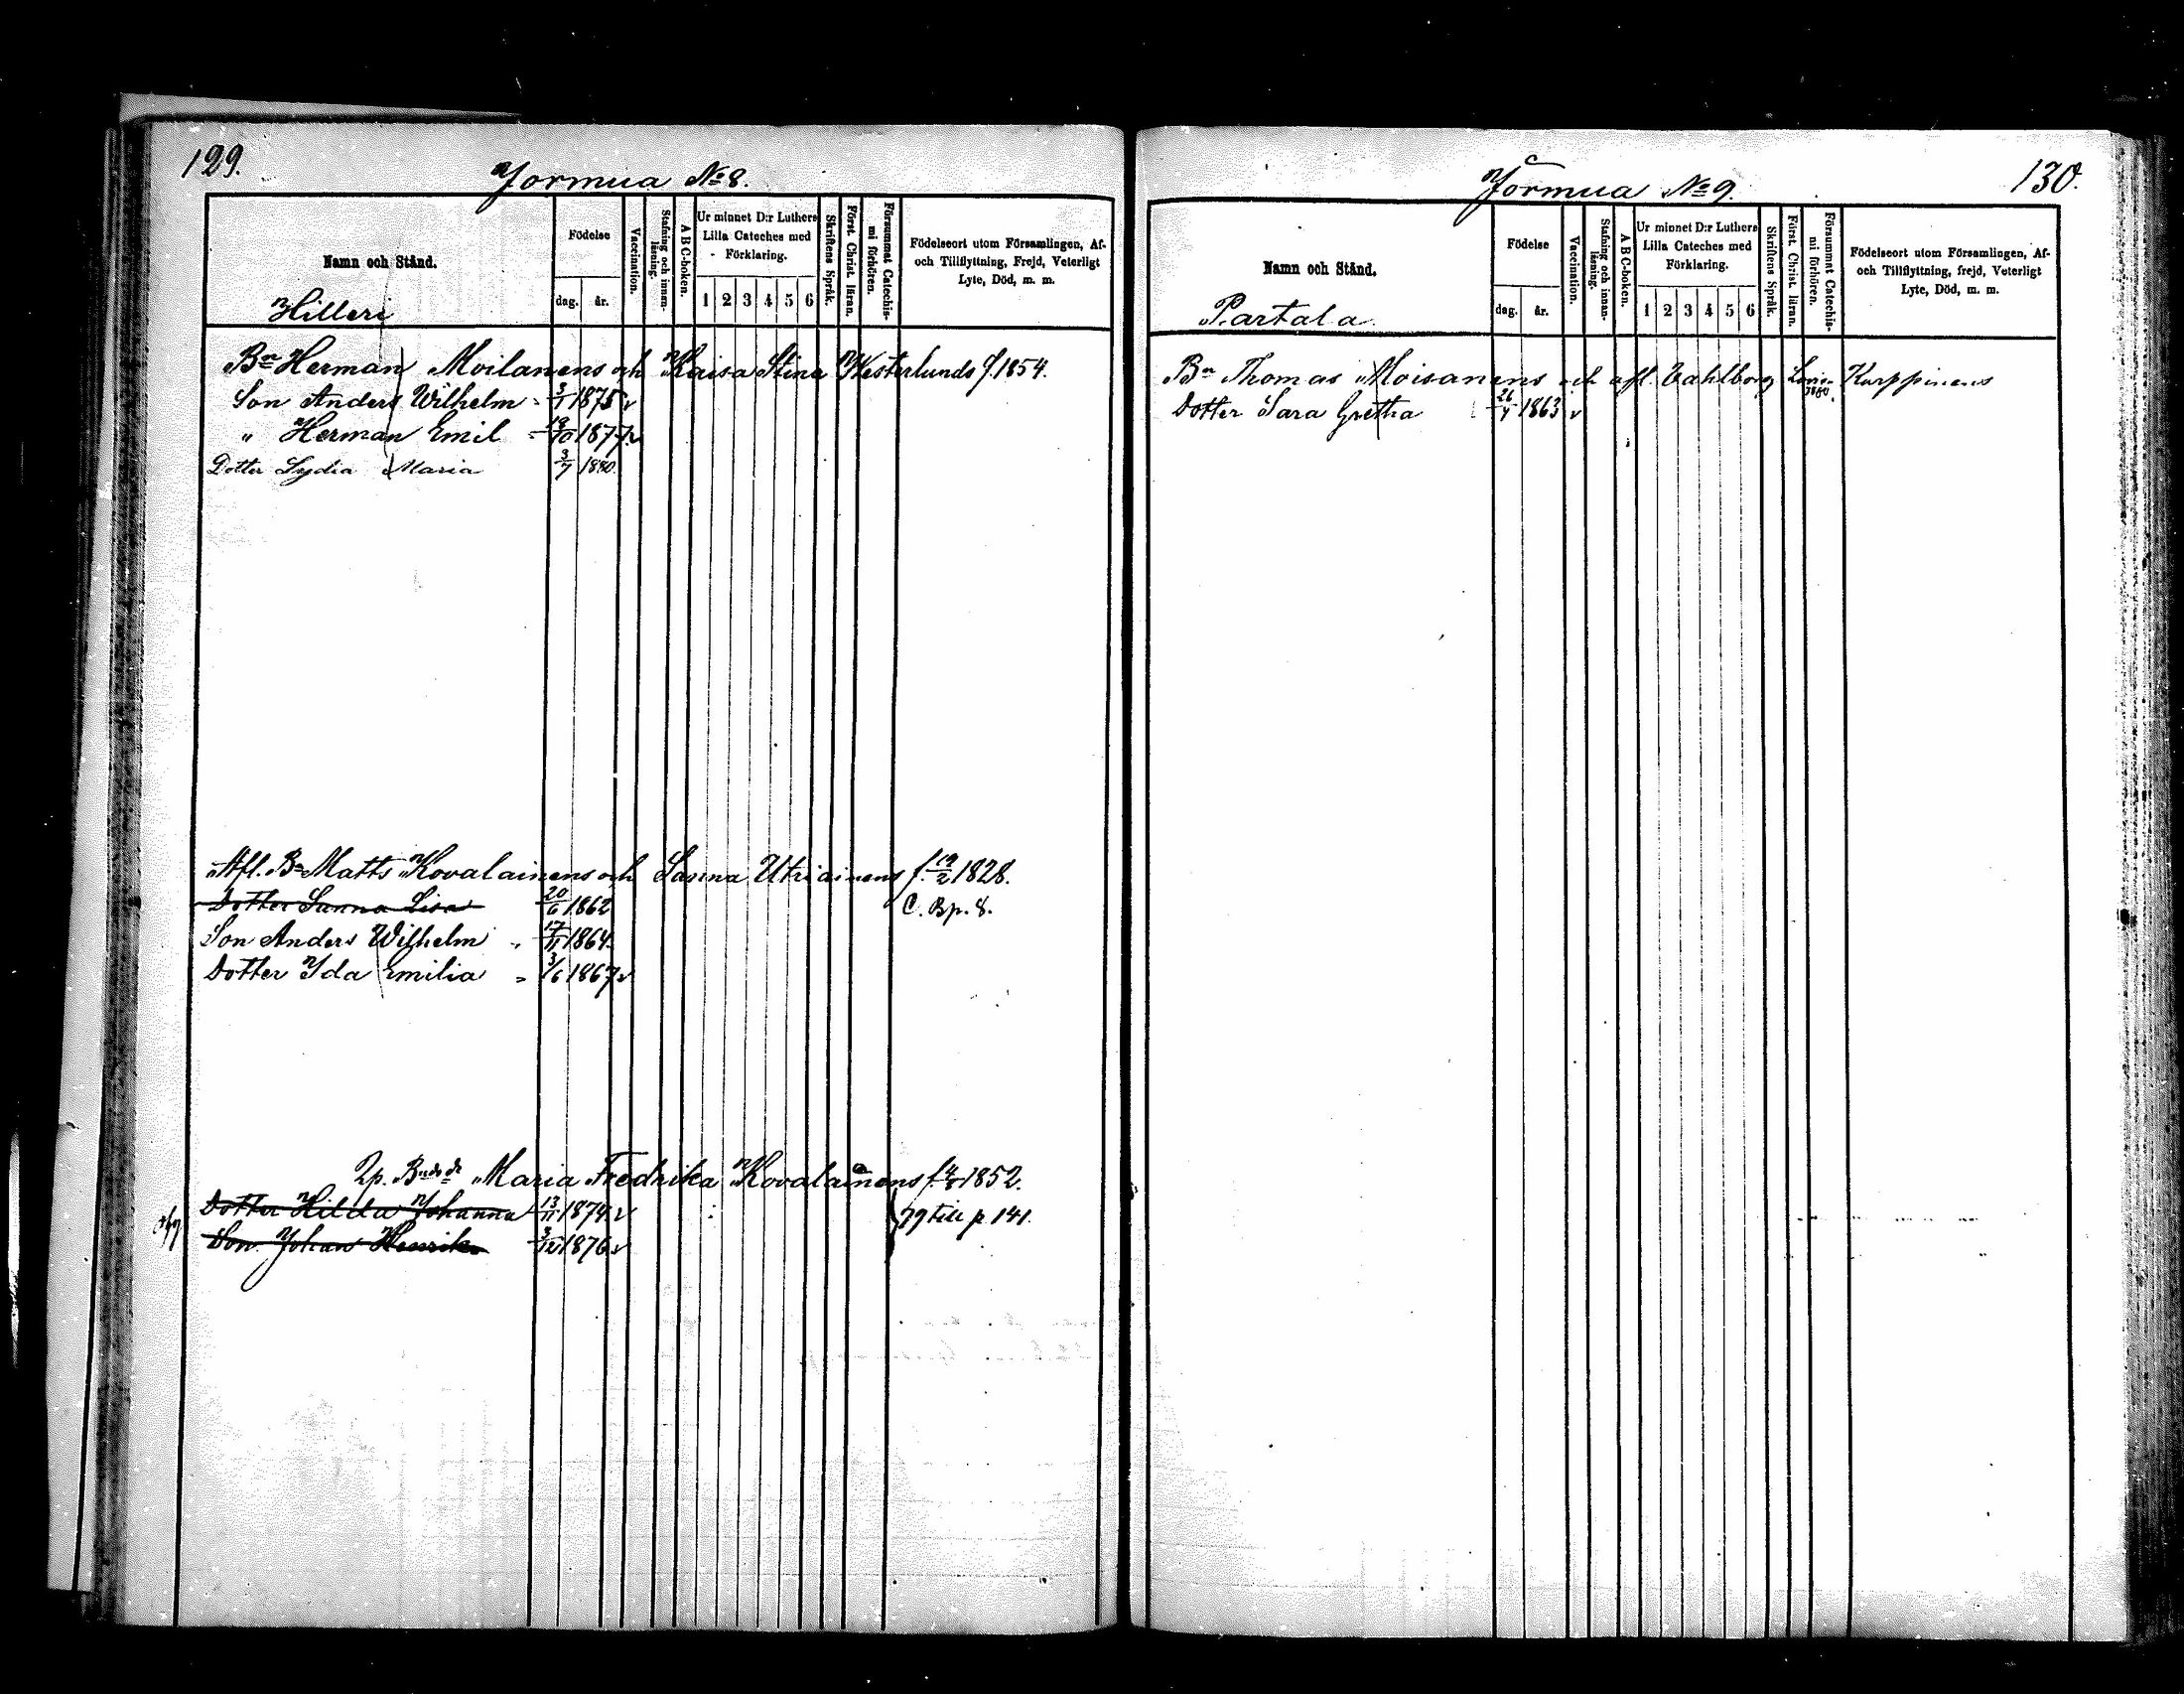 129.
Jormua No 8.
Namn och Stånd.
Födelse
dag.
år.
Vaccination.
Stafning och innan-
läsning.
A B C-boken.
Ur minnet D:r Luthers
Lilla Cateches med
Förklaring.
1 2 3 4 5 6
Skriftens Språk.
Först. Christ. läran.
Försummat Catechis-
mi förhören.
Födelseort utom Församlingen, Af-
och Tillflyttning, Frejd, Veterligt
Lyte, Död, m. m.
Hilleri
Bn Herman Moilanens och Kaisa Stina Westerlunds f. 1854.
Son Anders Wilhelm 3/1 1875 v
" Herman Emil 19/10 1877 v
Dotter Lydia Maria 3/7 1880.
Afl. Bn Matts Kovalainens och Sanna Utriainens f. 19/2 1828.
Dotter Sanna Lisa 20/6 1862 C. Bp. 8.
Son Anders Wilhelm 17/11 1864
Dotter Ida Emilia 3/6 1867 v
Maria Fredrika Kovalainens 1852.
Dotter Hilda Johanna 13/11 1874 v
Son Johan Henrik 3/12 1876 v
79 till p. 141.
Jormua No 9.
130.
Namn och Stånd.
Födelse
dag.
år.
Vaccination.
Stafning och innan-
läsning.
A B C-boken.
Ur minnet D:r Luthers
Lilla Cateches med
Förklaring.
1 2 3 4 5 6
Skriftens Språk.
Först. Christ. läran.
Försummat Catechis-
mi förhören.
Födelseort utom Församlingen, Af-
och Tillflyttning, frejd, Veterligt
Lyte, Död, m. m.
Partala
Bn Thomas Moisanens och afl. Vahlborg Karppinens
Dotter Sara Gretha 26/4 1863 v